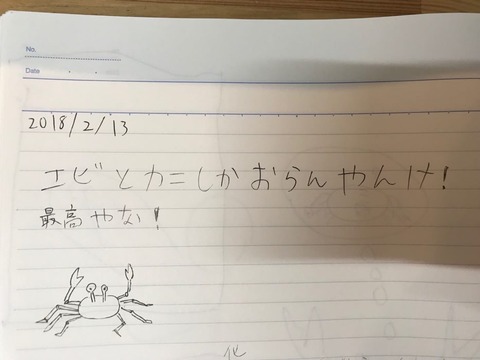 No.
Date
2018/2/13
エビとカニしかおらんやんけ!
最高やな!
化